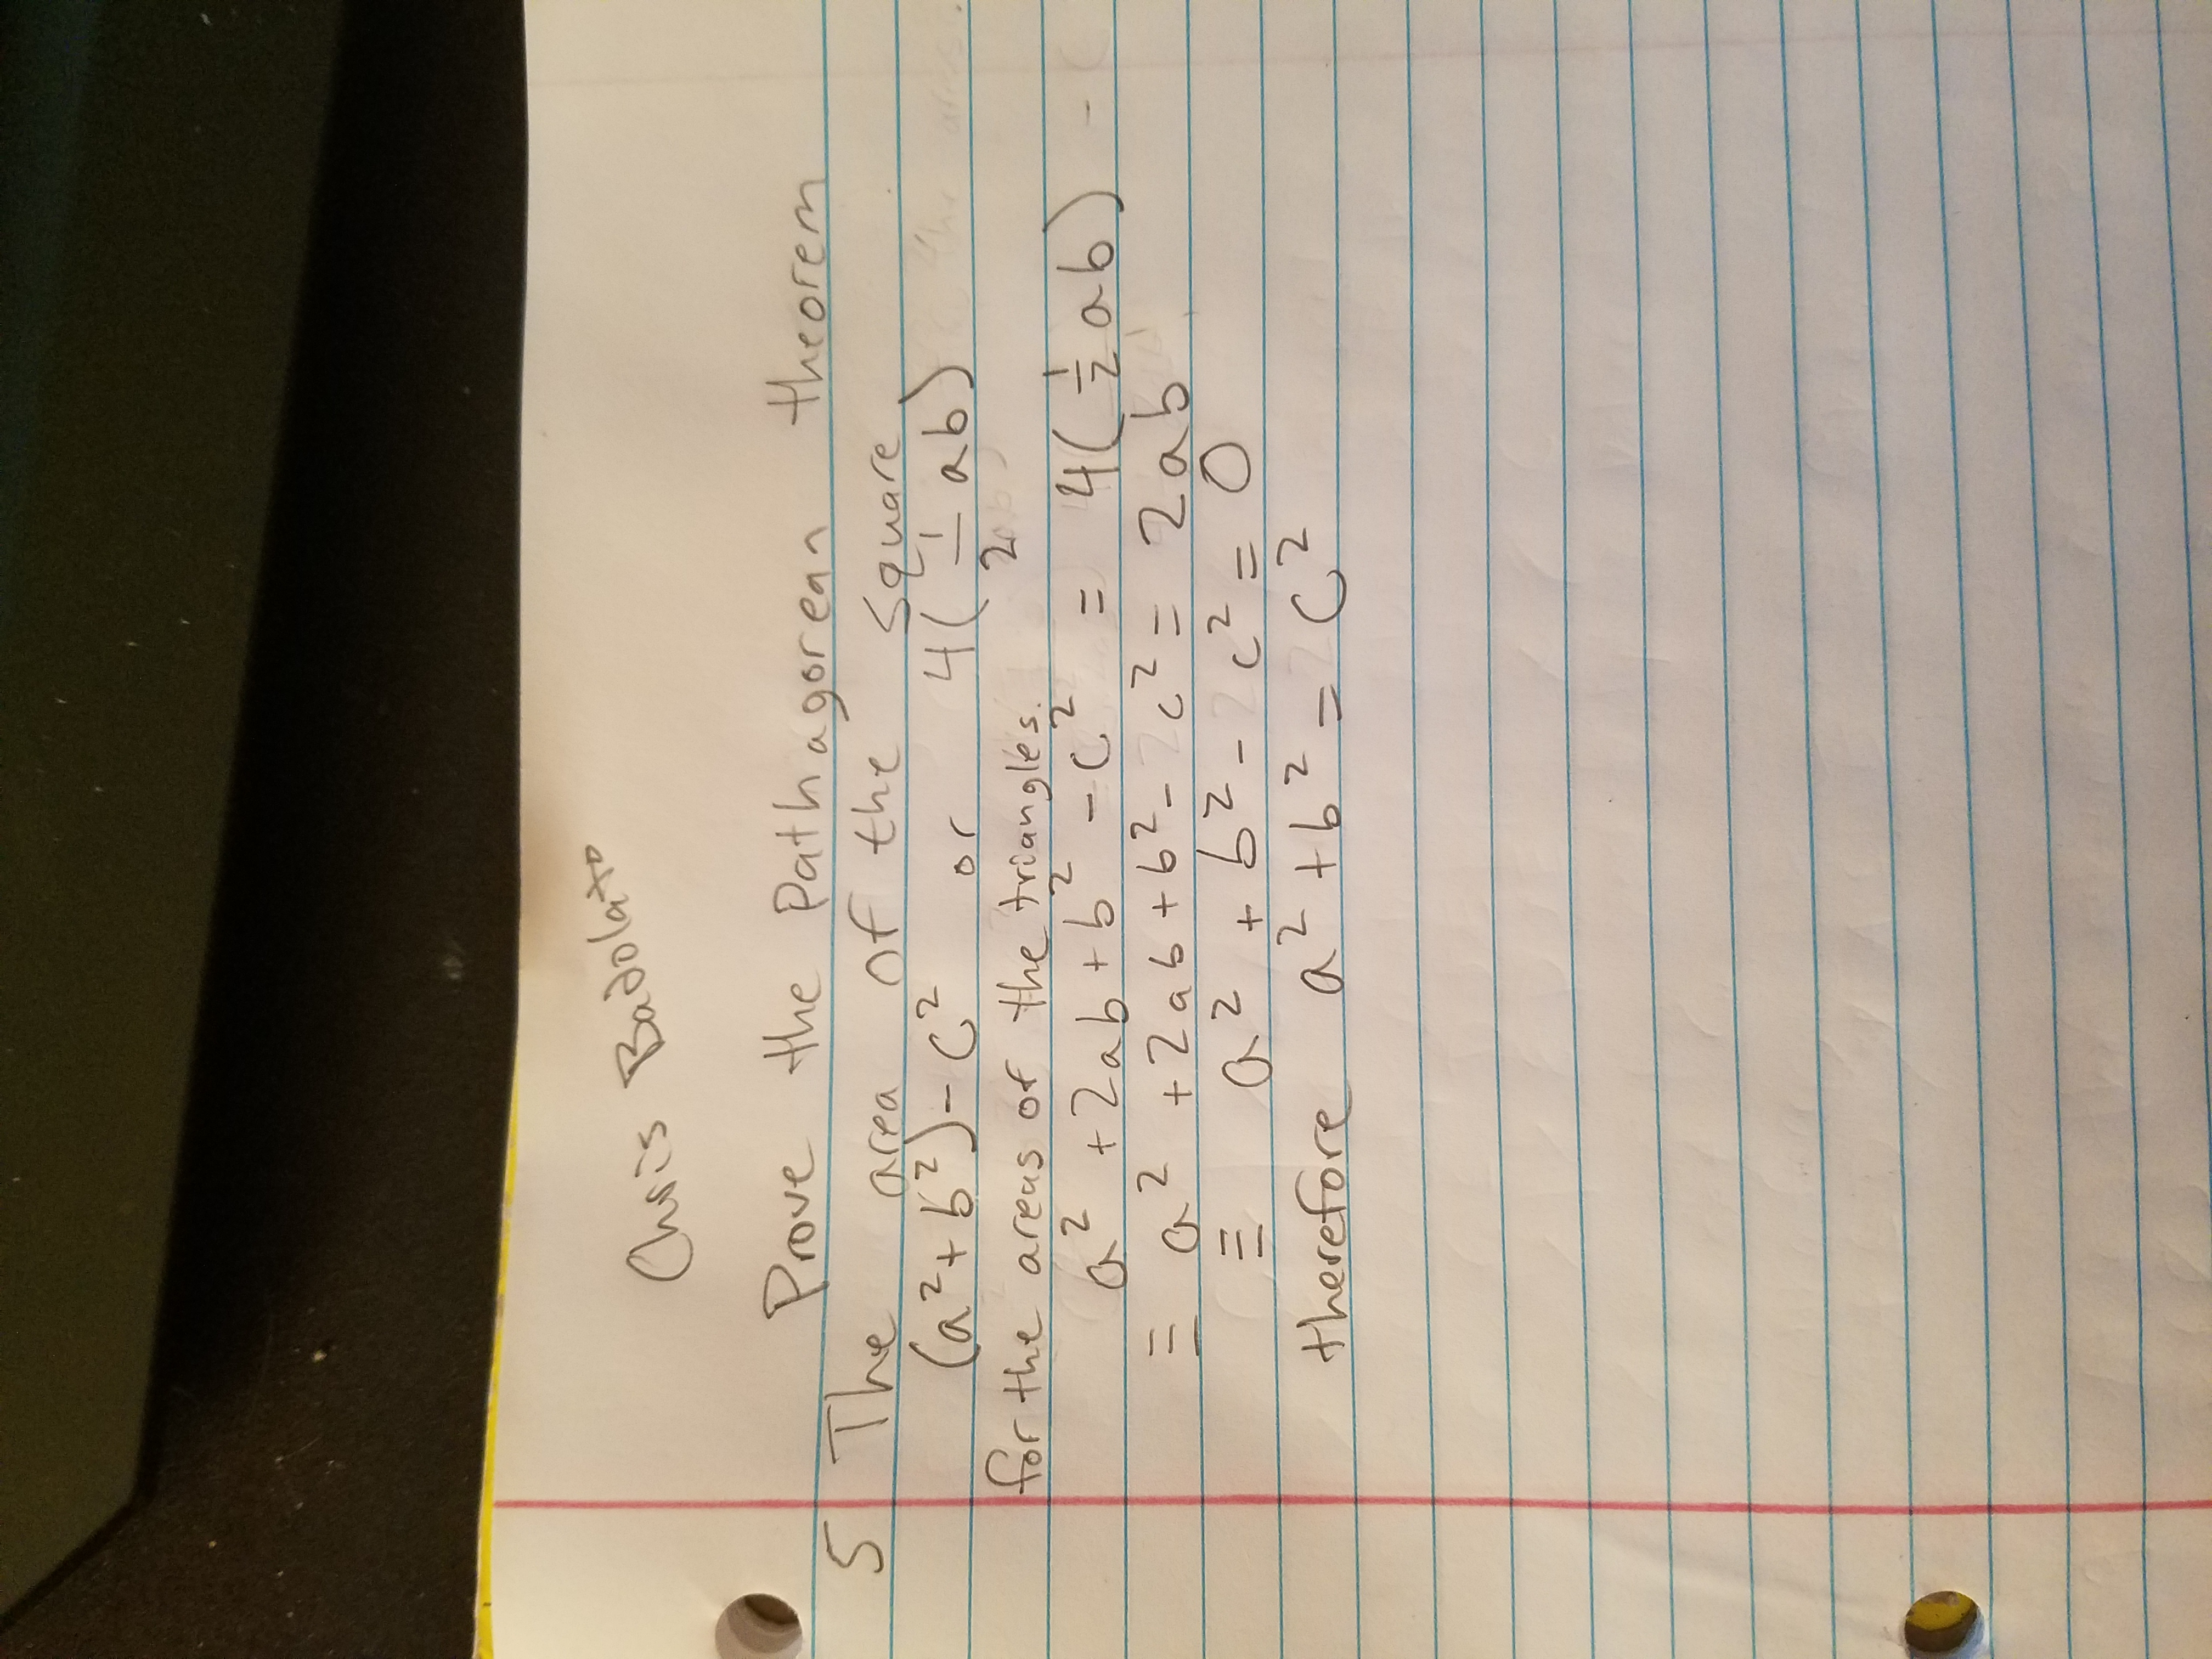 Chris Badolato
Prove the Pathagorean theorem
5 The area of the square
(a²+b²)-c² or 4(1/2 ab)
for the areas of the triangles.
a² +2ab+b² -c² = 4(1/2 ab)
≡ a² +2ab+b²- c² = 2ab
≡ a² + b² - c² = 0
therefore a² +b² = c²